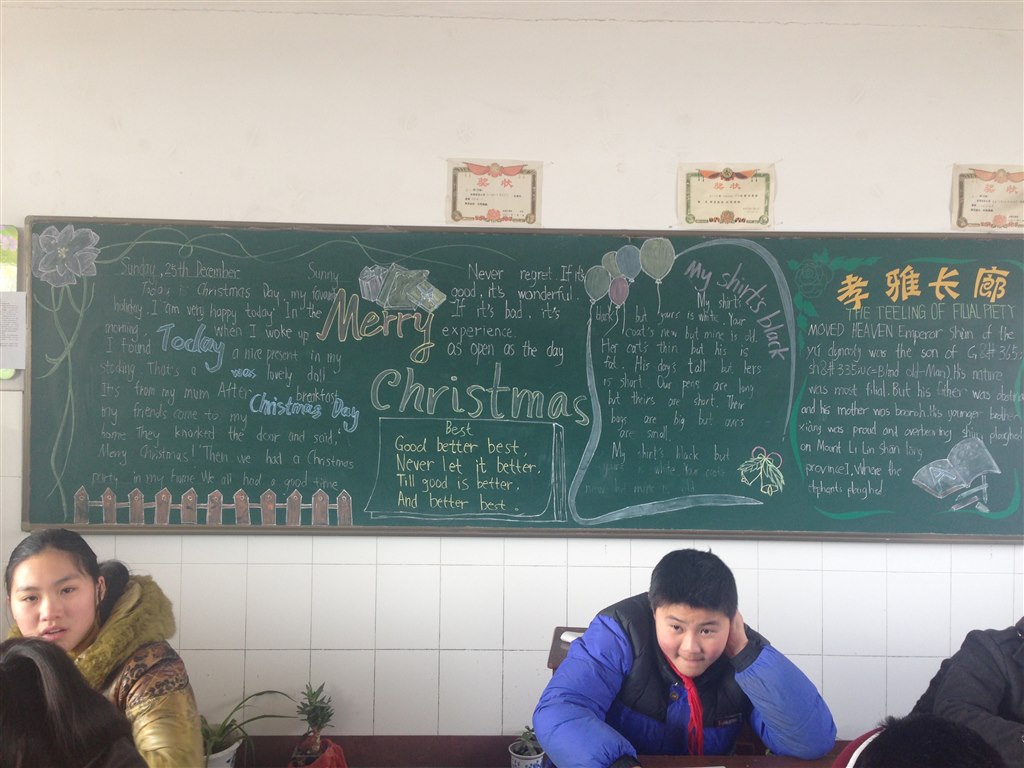 奖 状
奖 状
奖 状
Sunday, 25th December Sunny
Today is Christmas Day, my favourite
holiday. I am very happy today. In the
morning, when I woke up
I found a nice present in my
stocking. That's a lovely doll
It's from my mum After breakfast
my friends came to my
home. They knocked the door and said,
Merry Christmas! Then we had a Christmas
party in my home We all had a good time
Today
was
Christmas Day
Merry
Christmas
Never regret. If it's
good, it's wonderful.
If it's bad, it's
experience.
as open as the day
Best
Good better best,
Never let it better.
Till good is better,
And better best.
My shirt's black
My shirt's
black but yours is white. Your
coat's new but mine is old.
Her cat's thin but his is
fat. His dog's tall but hers
is short. Our pens are long
but theirs are short. Their
bags are big but ours
are small.
My shirt's black but
yours is white Your coat's
new but mine is old
孝雅长廊
THE TEELING OF FILIAL PIETY
MOVED HEAVEN Emperor Shùn of the
yú dynasty was the son of G&#365
sh&#335u(a=Blind old-Man). His nature
was most filial. But his father was
and his mother was His younger brother
xiàng was proud and overbearing shùn ploughed
on Mount Lì Lín Shān
province], Where the
elephants ploughed